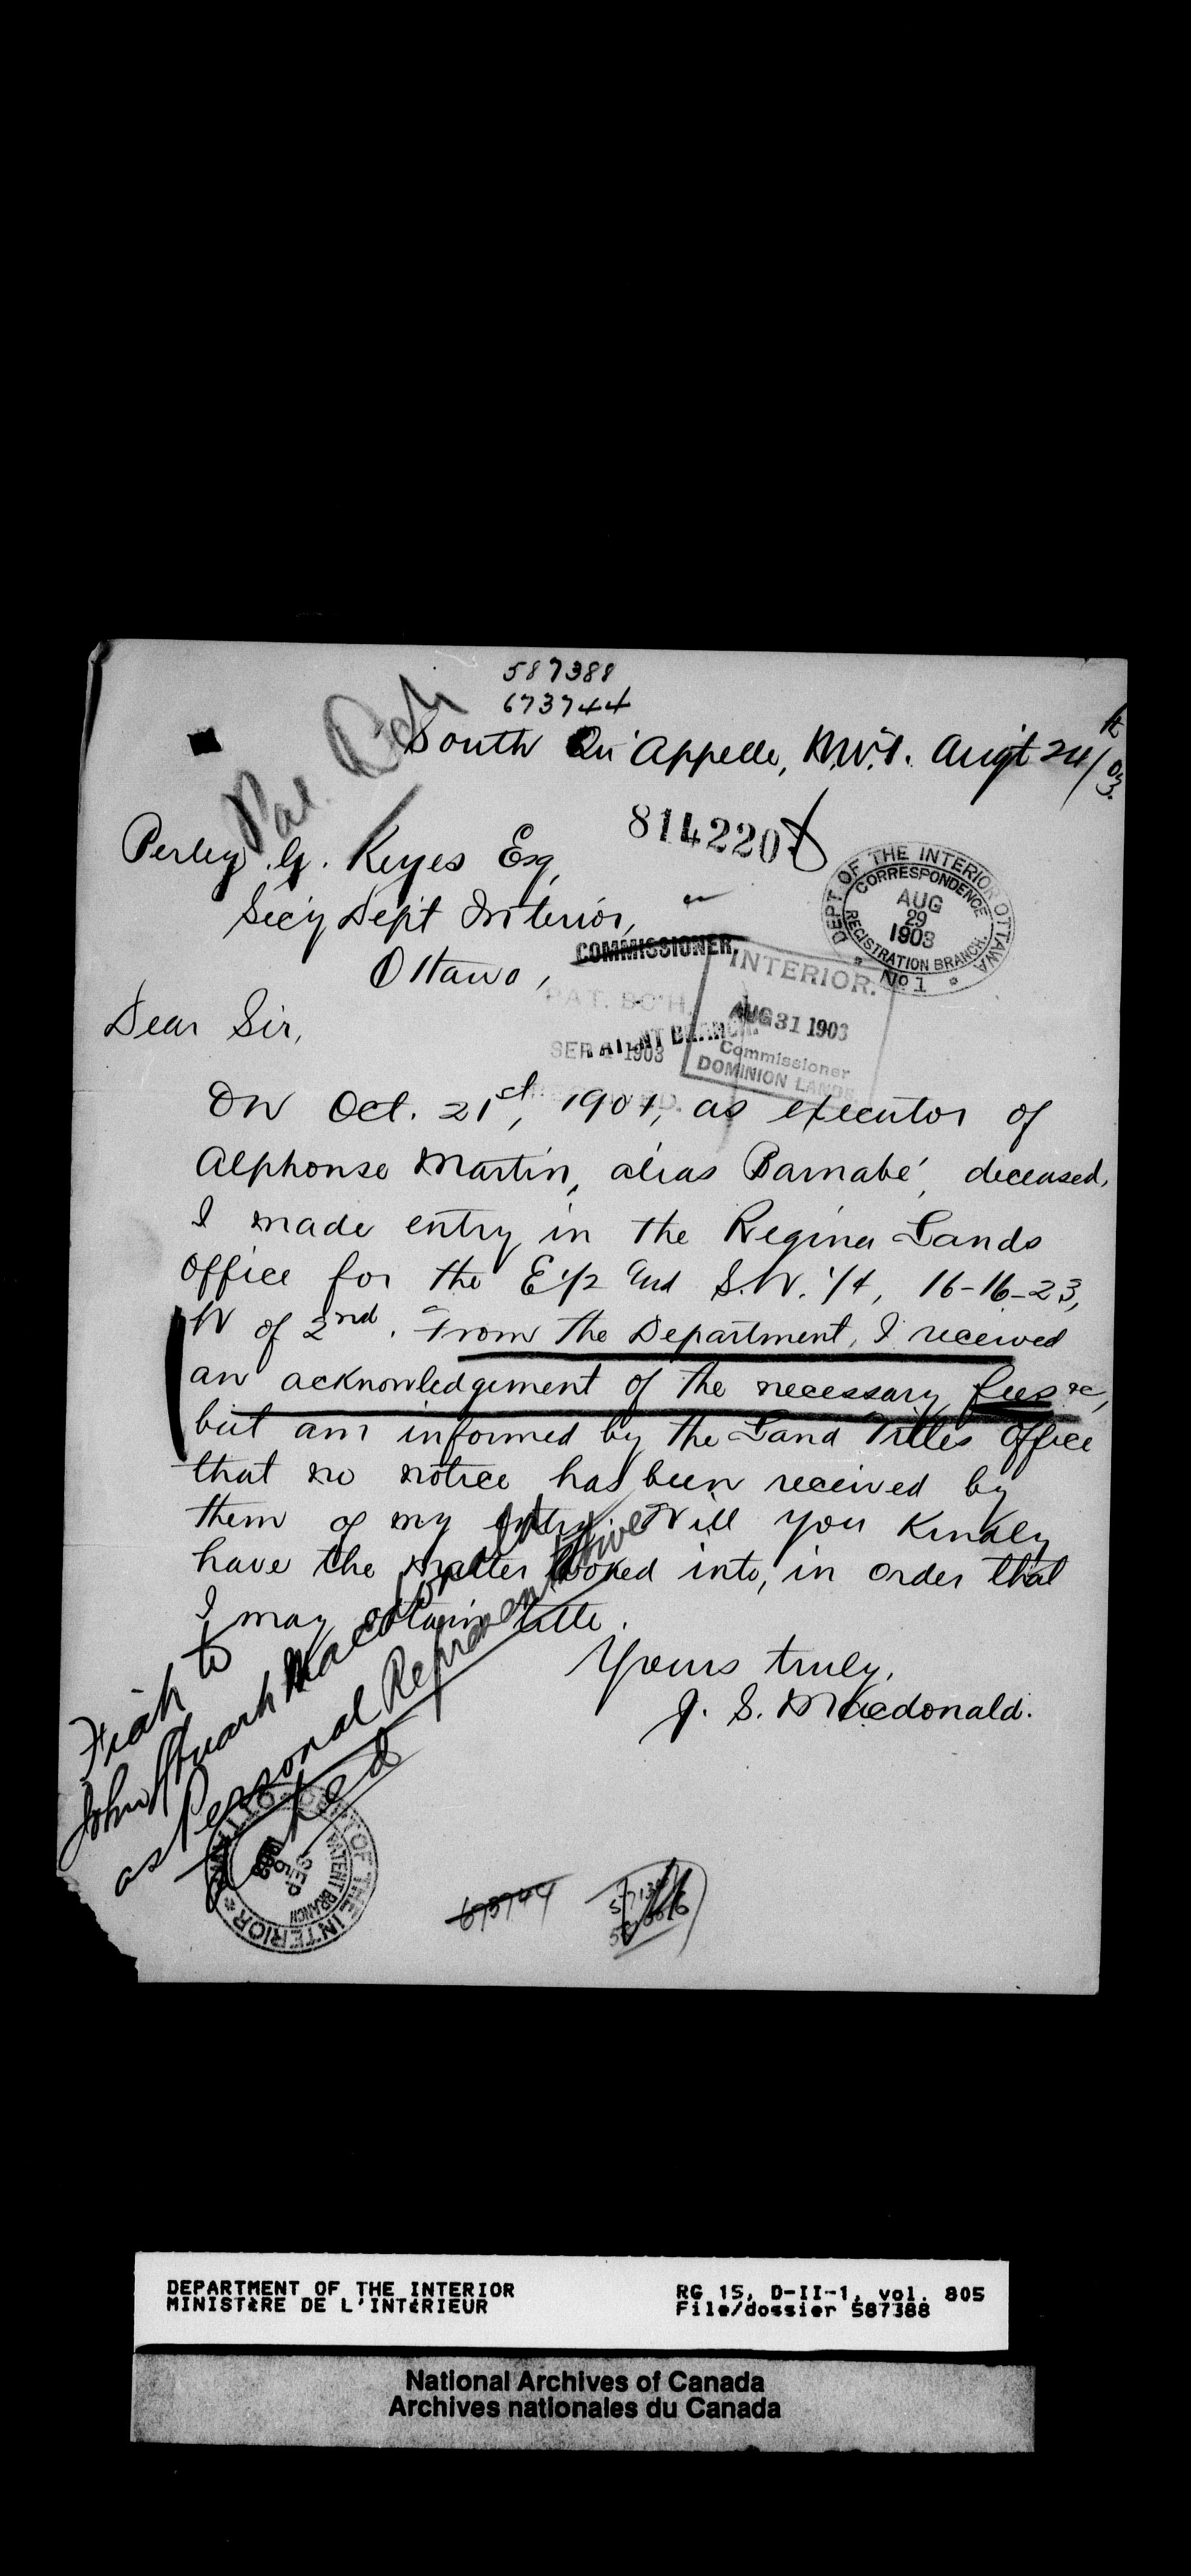 587388
673744
South Qu'Appelle, N.W.T. Aug't 24th/03.
Perley G. Keyes Esq,
814220
Sec'y Dep't Interior,
Ottawa,
DEPT OF THE INTERIOR OTTAWA
CORRESPONDENCE
AUG
29
1903
REGISTRATION BRANCH.
No 1
COMMISSIONER.
INTERIOR.
AUG 31 1903
Commissioner
DOMINION LANDS
PAT. BCH.
PATENT BRANCH
SEP 1 1903
Dear Sir,
On Oct. 21st, 1901, as executor of
Alphonse Martin, alias Barnabé, deceased,
I made entry in the Regina Lands
Office for the E1/2 and S.W. 1/4, 16-16-23,
W of 2nd. From the Department, I received
an acknowledgement of the necessary fees &c,
but am informed by the Land Titles Office
that no notice has been received by
them of my entry. Will you kindly
have the matter looked into, in order that
I may obtain title.
Yours truly,
J. S. Macdonald.
Fiat to
John Stuart Macdonald
as Personal Representative
DEPT OF THE INTERIOR
PATENT BRANCH
SEP
673744
DEPARTMENT OF THE INTERIOR
MINISTèRE DE L'INTéRIEUR
RG 15, D-II-1, vol. 805
File/dossier 587388
National Archives of Canada
Archives nationales du Canada